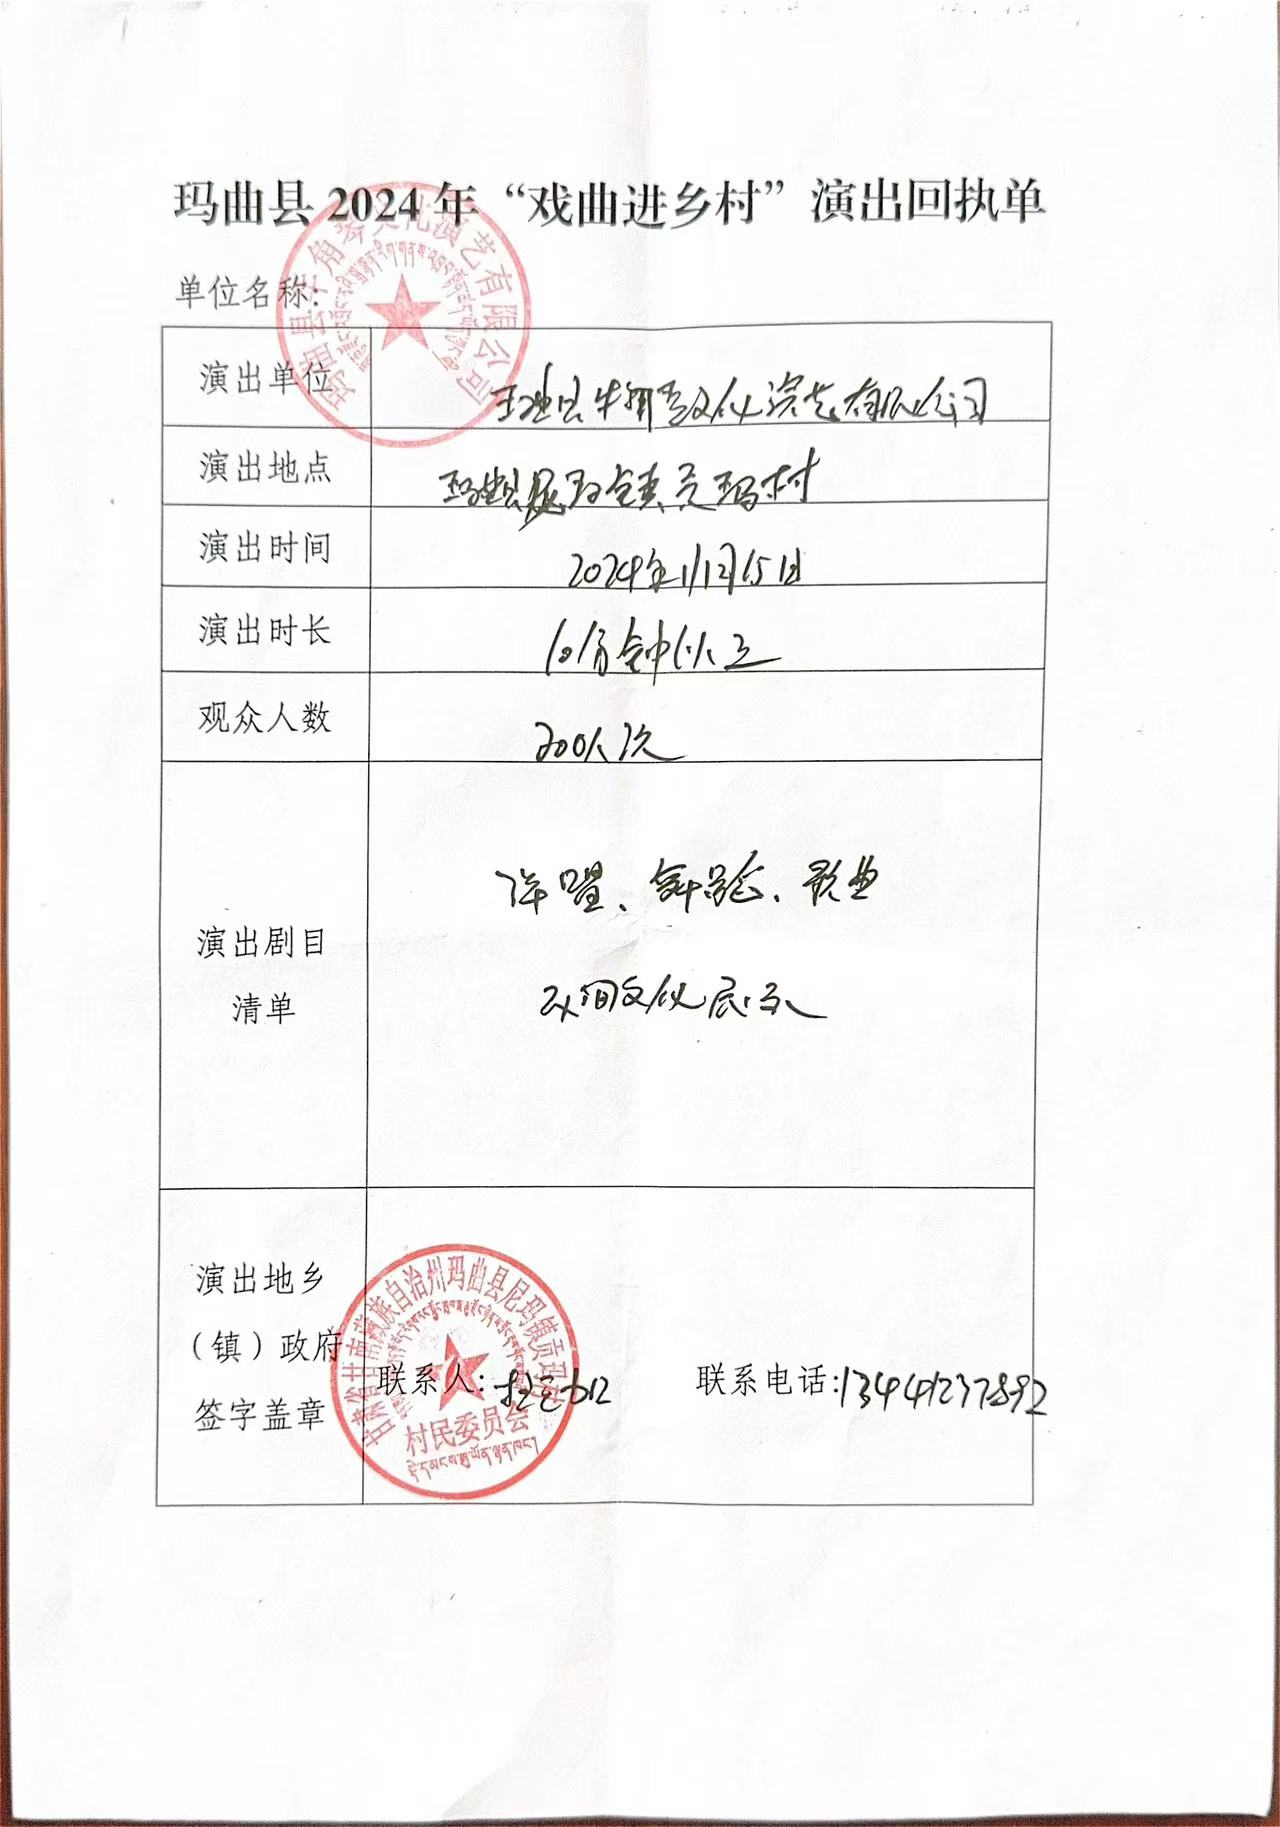 玛曲县 2024 年“戏曲进乡村”演出回执单
单位名称:
玛曲县牛角琴文化演艺有限公司
演出单位 玛曲县牛角琴文化演艺有限公司
演出地点 玛曲县尼玛镇贡玛村
演出时间 2024年11月15日
演出时长 60分钟以上
观众人数 200人次
演出剧目
清单
歌曲
民间文化展示
演出地乡
（镇）政府
签字盖章
联系人: 联系电话:13444237892
甘肃省甘南藏族自治州玛曲县尼玛镇贡玛村
村民委员会